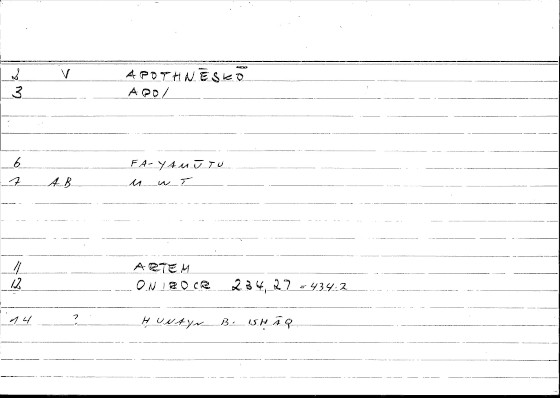 2 V APOTHNĒSKŌ
3 APO/
6 FA-YAMŪTU
7 AB M W T
11 ARTEM
12 ONIROCR 234,27 = 434.2
14 ? ḤUNAYN B. ISḤĀQ